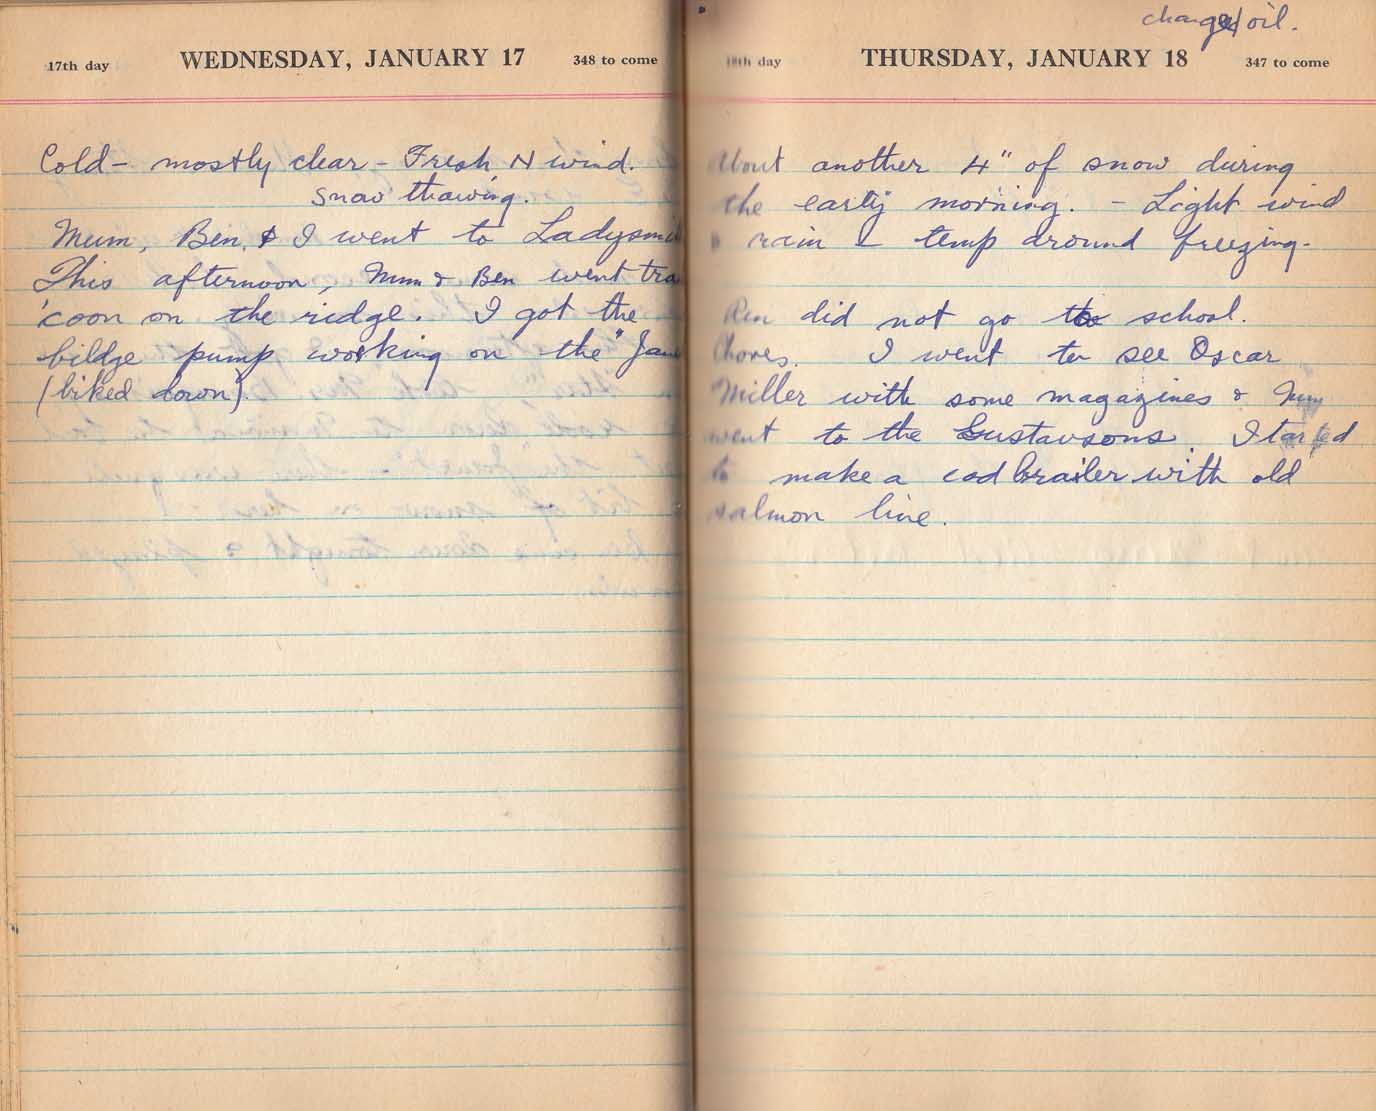 17th day WEDNESDAY, JANUARY 17 348 to come
Cold - mostly clear - Fresh N wind.
snow thawing.
Mum, Ben, & I went to Ladysmi
This afternoon, Mum & Ben went tra
'coon on the ridge. I got the
bildge pump working on the "Jane
(biked down).
changed oil.
18th day THURSDAY, JANUARY 18 347 to come
About another 4" of snow during
the early morning. - Light wind
rain - temp around freezing.
Ben did not go to school.
Chores. I went to see Oscar
Miller with some magazines & Mum
went to the Gustavsons. I started
to make a cod brailer with old
salmon line.